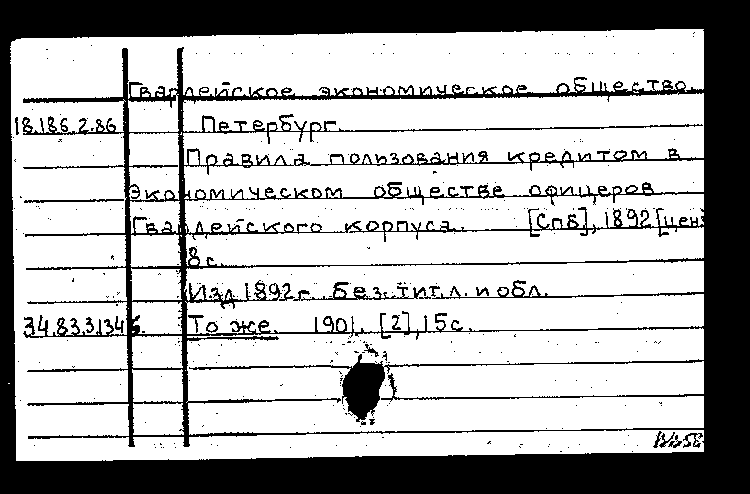 Гвардейское экономическое общество.
18.186.2.86 Петербург.
Правила пользования кредитом в
экономическом обществе офицеров
Гвардейского корпуса. [Спб], 1892 [ценз
8 с.
Изд 1892 г. Без. тит. л. и обл.
34.83.3.134 б. То же. 1901. [2], 15 с.